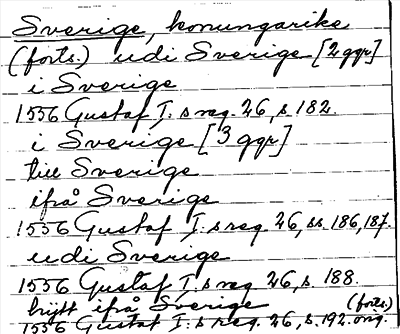 Sverige, konungarike
(forts.) udi Sverige [2 ggr]
i Sverige
1556 Gustaf I:s reg. 26, s. 182.
i Sverige [3 ggr]
till Sverige
ifrå Sverige
1556 Gustaf I:s reg. 26, ss. 186, 187.
udi Sverige
1556 Gustaf I:s reg. 26, s. 188.
bytt ifrå Sverige (forts.)
1556 Gustaf I:s reg. 26, s. 192. orig.